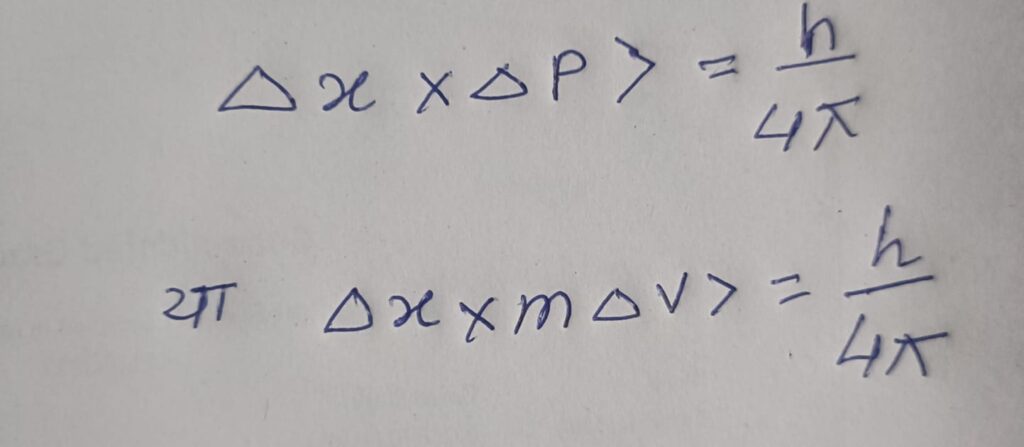 Δx × ΔP > = h/4π
या Δx × mΔV > = h/4π